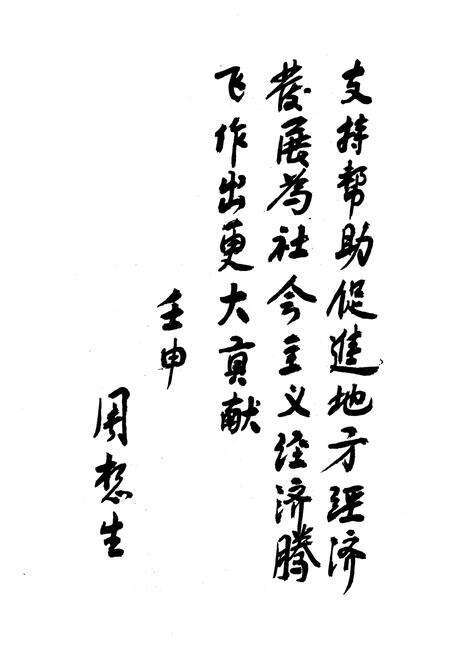 支持帮助促進地方経济
發展為社会主义経济腾
飞作出更大贡献
壬申
周愁生